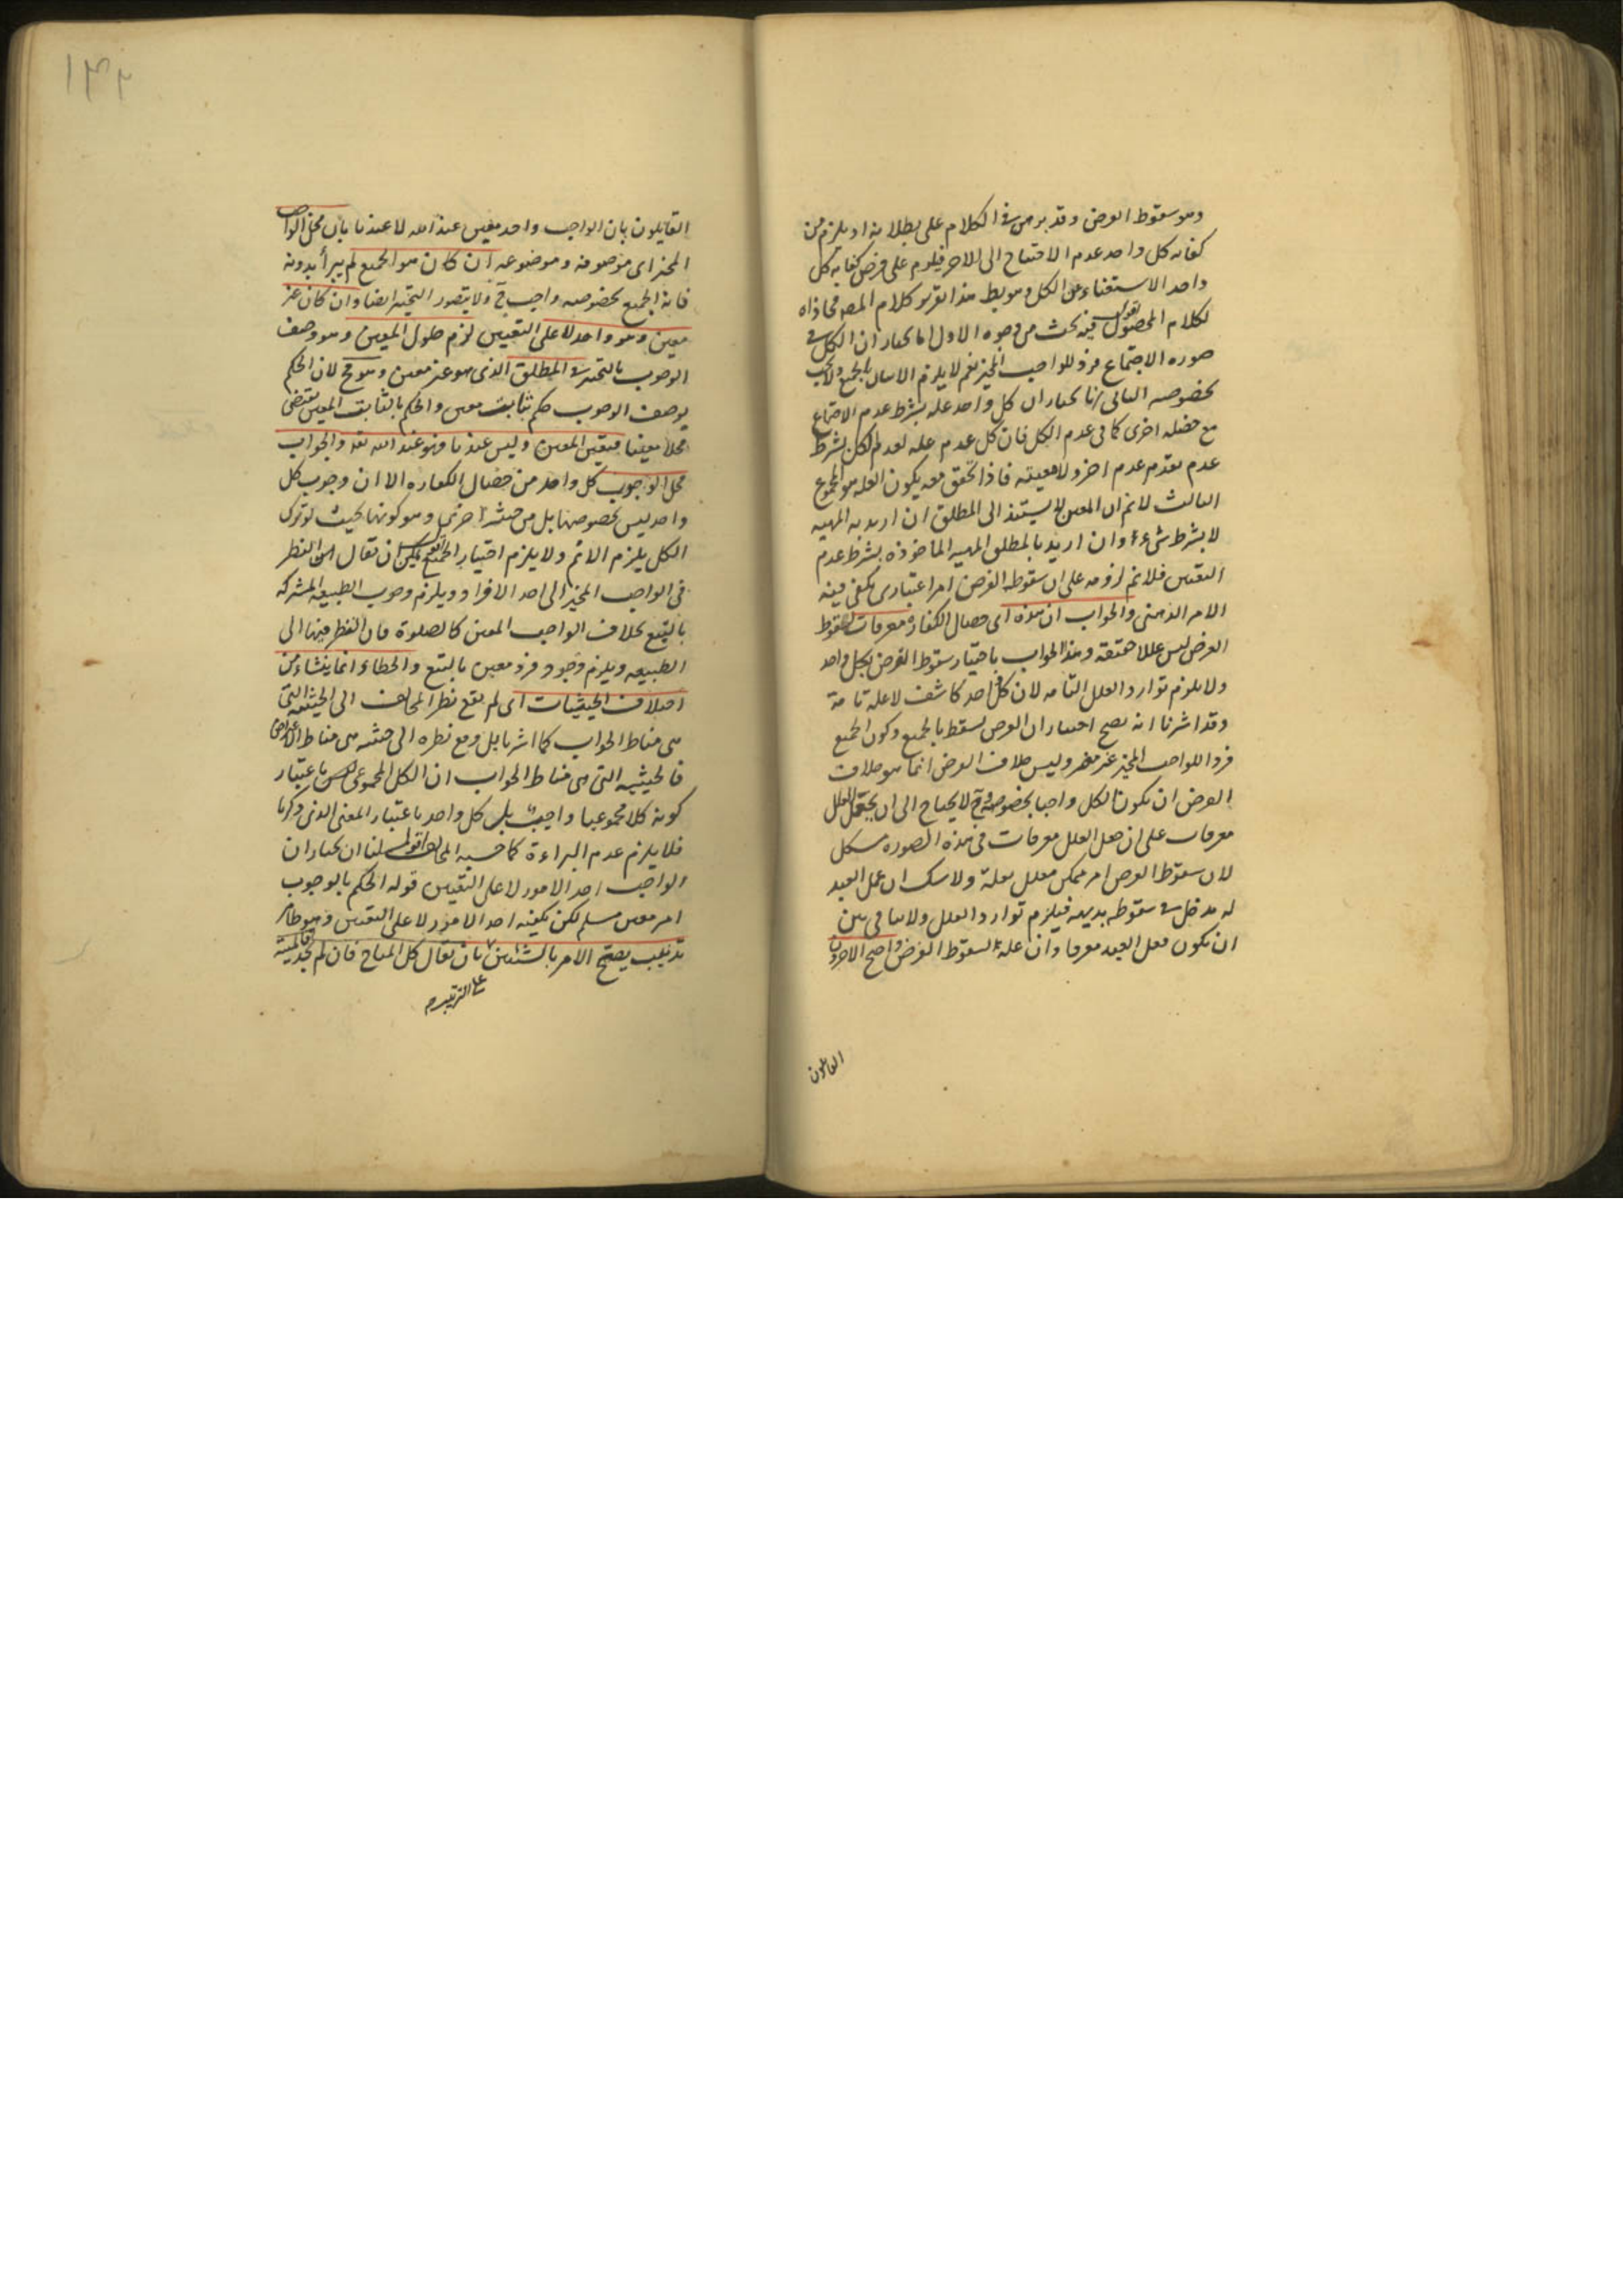 وهو سقوط الفرض وقد برهن في الكلام على بطلانه اذ يلزم من
كفاية كل واحد عدم الاحتياج الى الاخر فيلزم على فرض كفاية كل
واحد الاستغناء عن الكل وهو بط هذا تقرير كلام المصه محاذاه
لكلام المحصول اقول فيه بحث من وجوه الاول انا نختار ان الكل في
صوره الاجتماع فرد للواجب المخير نعم لا يلزم الاتيان بالجميع ولا يجب
بخصوصه الثانى انا نختار ان كل واحد علة بشرط عدم الاجتماع
مع خصله اخرى كما فى عدم الكل فان كل عدم عله لعدم الكل بشرط
عدم تقدم عدم اخر ولا معيته فاذا تحقق معه يكون العله هو المجموع
الثالث لا نم ان المعين لا يستند الى المطلق ان اريد به المهيه
لا بشرط شىء وان اريد بالمطلق المهيه الماخوذه بشرط عدم
التعين فلا نم لزومه على ان سقوط الفرض امر اعتبارى يكفى فيه
الامر الذهنى والجواب ان هذه اى خصال الكفاره معرفات لسقوط
الفرض ليس عللا حقيقه وهذا الجواب باختيار سقوط الفرض بكل واحد
ولا يلزم توارد العلل التامه لان كل واحد كاشف لا علة تامة
وقد اشرنا انه يصح اختيار ان الفرض يسقط بالجميع وكون الجميع
فردا للواجب المخير غير مضر وليس خلاف الفرض انما هو خلاف
الفرض ان يكون الكل واجبا بخصوصه وح لا يحتاج الى ان يجعل العلل
معرفات على ان جعل العلل معرفات فى هذه الصوره مشكل
لان سقوط الفرض امر ممكن معلل بعلة ولا شك ان عمل العبد
له مدخل في سقوطه بديهه فيلزم توارد العلل ولا ينافى بين
ان يكون فعل العبد معرفا وان علة لسقوط الفرض واضح الاخرون
القايلون
١٣٢
القايلون بان الواجب واحد معين عند الله لا عندنا بان محل الواجب
المخير اى موصوفه وموضوعه ان كان هو الجميع لم يبرأ بدونه
فانه الجميع بخصوصه واجب ح ولا يتصور التخير ايضا وان كان غير
معين وهو واحد لا على التعيين لزم حلول المعين وهو وصف
الوجوب بالتخير في المطلق الذى هو غير معين وهو مح لان الحكم
بوصف الوجوب حكم ثابت معين والحكم بالثابت المعين يقتضى
محلا معينا فيتعين المعين وليس عندنا فهو عند الله تعه والجواب
محل الوجوب كل واحد من خصال الكفاره الا ان وجوب كل
واحد ليس بخصوصها بل من حيثيه اخرى وهو كونها بحيث لو ترك
الكل يلزم الاثم ولا يلزم اختيار الجميع اقول يمكن ان يقال ان النظر
فى الواجب المخير الى احد الافراد ويلزم وجوب الطبيعه المشتركه
بالتبع بخلاف الواجب المعين كالصلوة فان النظر فيها الى
الطبيعه ويلزم وجود فرد معين بالتبع والخطاء انما ينشاء من
اختلاف الحيثيات اى لم يقع نظر المخالف الى الحيثيه التى
هى مناط الجواب كما اشرنا بل وقع نظره الى حيثيه هى مناط الاعتراض
فالحيثيه التى هى مناط الجواب ان الكل المجموعى ليس باعتبار
كونه كلا مجموعيا واجب بل كل واحد باعتبار المعنى الذى ذكرنا
فلا يلزم عدم البراءة كما حسبه المخالف اقول لنا ان نختار ان
الواجب احد الامور لا على التعيين قوله الحكم بالوجوب
امر معين مسلم لكن يكفيه احد الامور لا على التعيين وهو ظاهر
تذنيب يصح الامر بالشيئين بان يقال كل المباح فان لم تجد فالميتة
على الترتيب